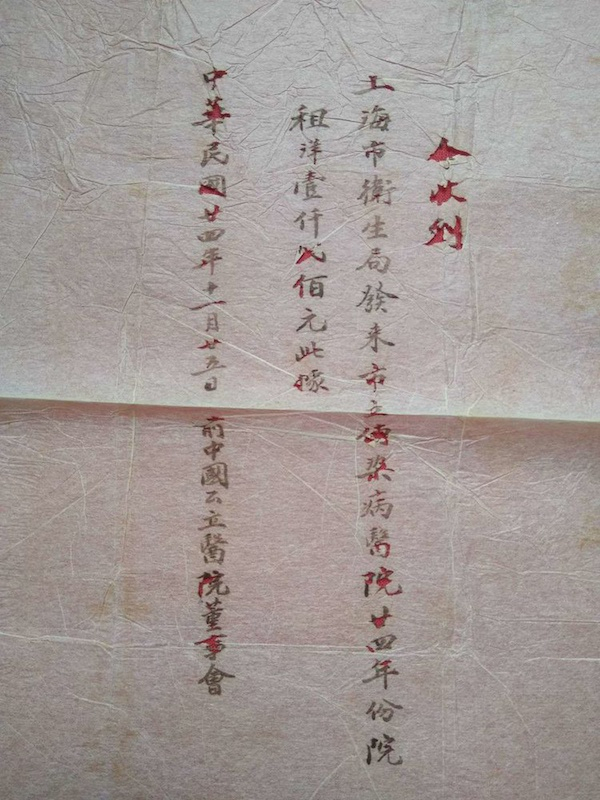 今收到
上海市衛生局發来市立傳染病醫院廿四年份院
租洋壹仟弍佰元此據
中華民國廿四年十一月廿五日 前中國公立醫院董事會